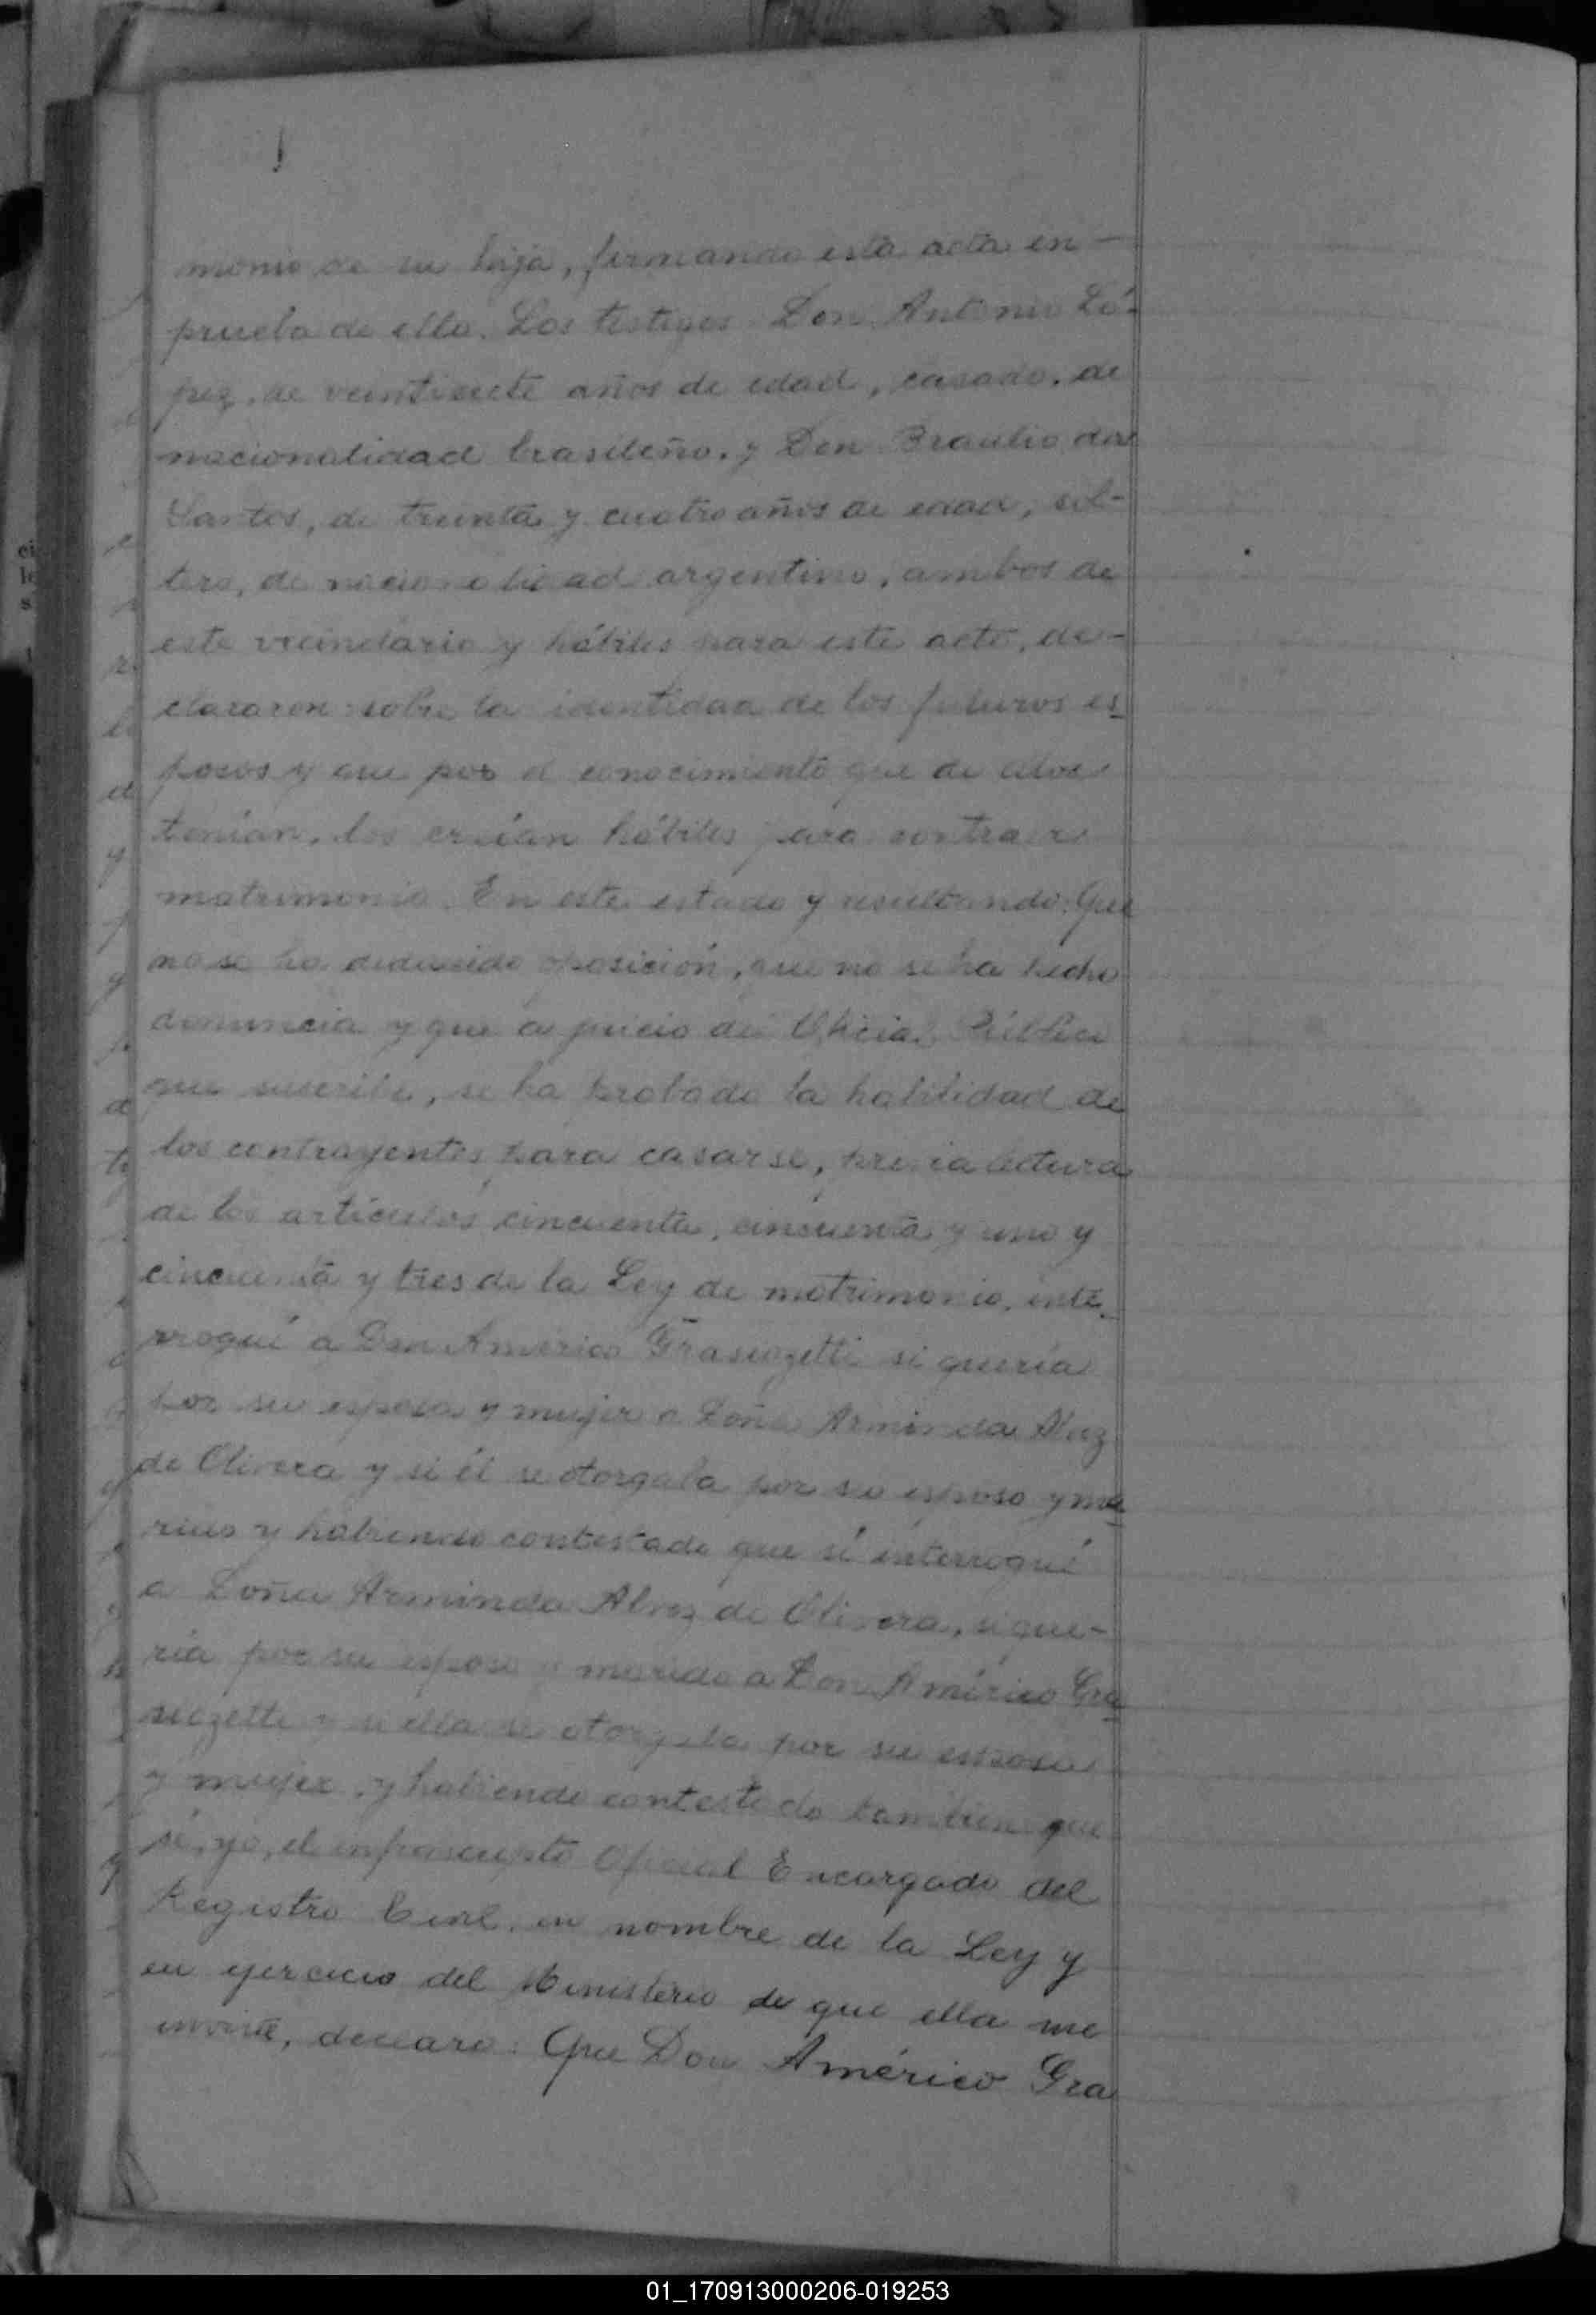 monio de su hija, firmando esta acta en —
prueba de ello. Los testigos Don Antonio Ló-
pez, de veintisiete años de edad, casado, de
nacionalidad brasileño, y Don Braulio dos
Santos, de treinta y cuatro años de edad, sol-
tero, de nacionalidad argentino, ambos de
este vecindario y hábiles para este acto, de-
clararon sobre la identidad de los futuros es
posos y que por el conocimiento que de ellos
tenían, los creían hábiles para contraer
matrimonio. En este estado y resultando: Que
no se ha deducido oposición, que no se ha hecho
denuncia y que a juicio del Oficial Público
que suscribe, se ha probado la habilidad de
los contrayentes para casarse, previa lectura
de los artículos cincuenta, cincuenta y uno y
cincuenta y tres de la Ley de matrimonio, inte-
rrogué a Don Américo Grasiozetti si quería
por su esposa y mujer a Doña Arminda Alvez
de Olivera y si él se otorgaba por su esposo y ma
rido y habiendo contestado que sí interrogué
a Doña Arminda Alvez de Olivera, si que-
ría por su esposo y marido a Don Américo Gra
siozetti y si ella se otorgaba por su esposa
y mujer, y habiendo contestado tambien que
sí, yo, el infrascripto Oficial Encargado del
Registro Civil, en nombre de la Ley y
en ejercicio del Ministerio de que ella me
inviste, declaro: Que Don Américo Gra
01_170913000206-019253